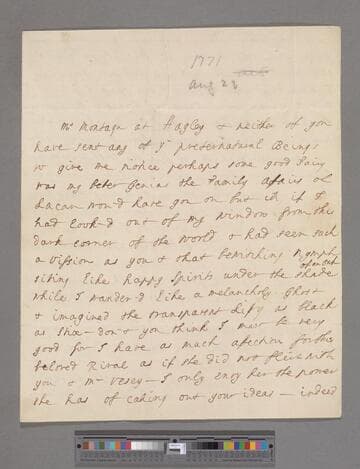 1771
Aug 23
Mrs Montagu at Hagley & neither of you
have sent any of yr preternatural Beings
to give me notice perhaps some good Fairy
was my Peter Genius the Family Affairs at
Lucan wou'd have gon on but if I
had Look-d out of my Window from this
dark corner of the World & had seen such
a Vission as you & that bewitching Nymph
sitting Like happy Spirits under the shade
while I wander-d Like a melancholy Ghost
& imagined the transparent Lify as black
as Stix – don't you think I must be very
good for I have as much afection for this
beloved Rival as if she did not Live with
you & Mr Vesey – I only envy her the power
she has of caling out your ideas – indeed